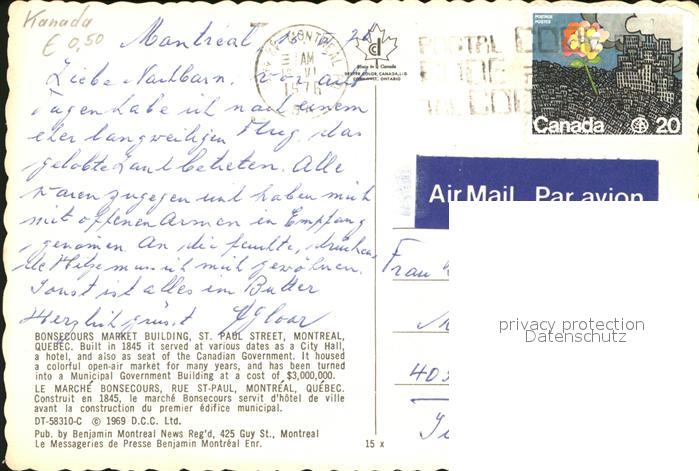 Kanada
€ 0,50
Montréal
MONTREAL
AM
VI
1976
Made in Canada
DEXTER COLOR CANADA LTD
CORNWALL, ONTARIO
POSTAL CODE
CODE
CO
POSTAGE
POSTES
Canada 20
Liebe Nachbarn. vor
Tagen habe ich nach einem
eher langweiligen Flug, das
gelobte Land betreten. Alle
waren zugegen und haben mich
mit offenen Armen in Empfang
genomen. An die feuchte, drücken
de Hitze muss ich mich gewöhnen.
Sonst ist alles im Butter
Herzlich grüsst
AirMail Par avion
Frau
privacy protection
Datenschutz
BONSECOURS MARKET BUILDING, ST. PAUL STREET, MONTREAL,
QUEBEC. Built in 1845 it served at various dates as a City Hall,
a hotel, and also as seat of the Canadian Government. It housed
a colorful open-air market for many years, and has been turned
into a Municipal Government Building at a cost of $3,000,000.
LE MARCHÉ BONSECOURS, RUE ST-PAUL, MONTRÉAL, QUÉBEC.
Construit en 1845, le marché Bonsecours servit d'hôtel de ville
avant la construction du premier édifice municipal.
DT-58310-C © 1969 D.C.C. Ltd.
Pub. by Benjamin Montreal News Reg'd, 425 Guy St., Montreal
Le Messageries de Presse Benjamin Montréal Enr.
15 x